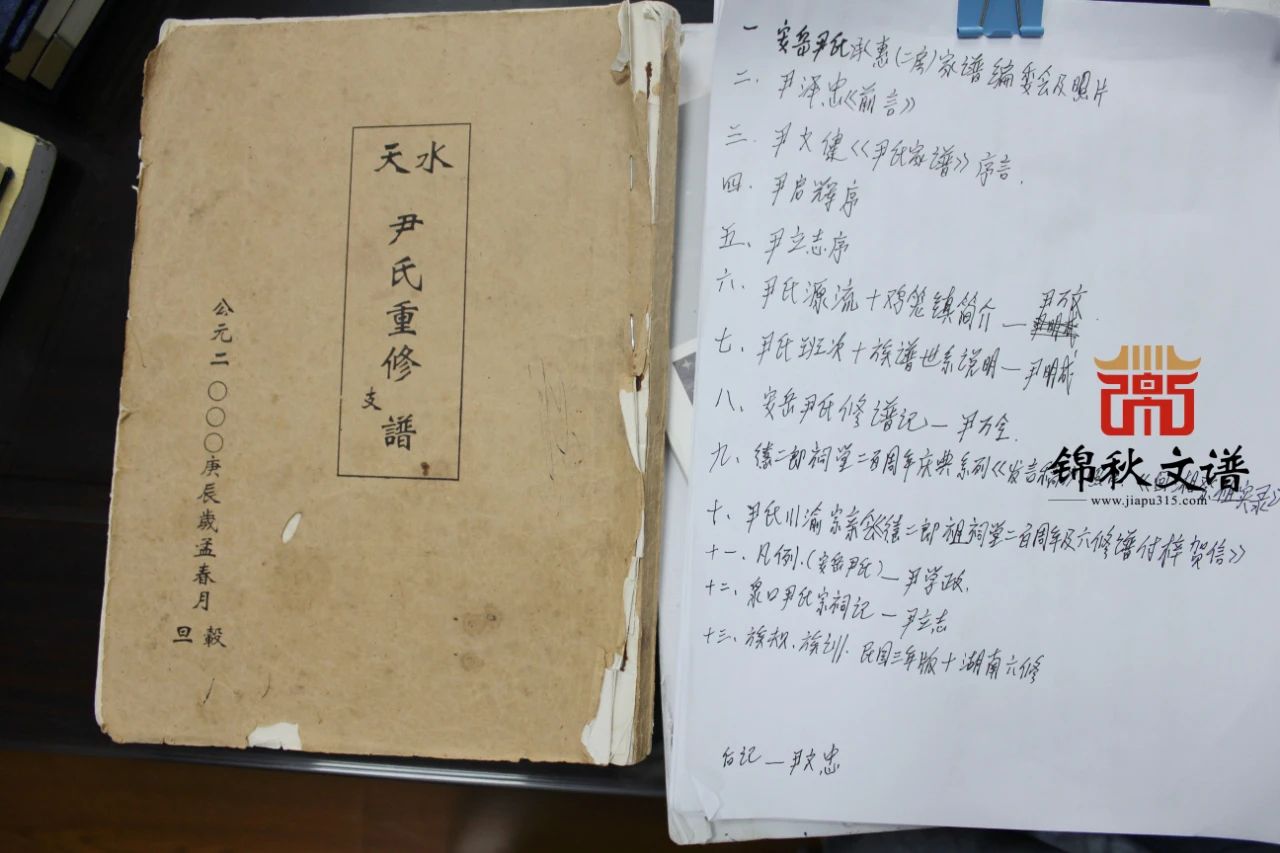 天水
尹氏重修支譜
公元二〇〇〇庚辰歲孟春月穀旦
一 安岳尹氏承惠(二房)家谱编委会及照片
二、尹泽忠《前言》
三、尹文健《尹氏家谱》序言.
四、尹启辉序
五、尹立志序
六、尹氏源流十鸡笼镇简介—尹万文
七、尹氏班次十族谱世系说明—尹明成
八、安岳尹氏修谱记—尹万全.
九、德二郎祠堂二百周年庆典系列《发言稿
实录》
十、尹氏川渝宗亲会《德二郎祖祠堂二百周年及六修谱付梓贺信》
十一、凡例.(安岳尹氏)—尹学政.
十二、泉口尹氏宗祠记—尹立志
十三、族规、族训、民国三年版十湖南六修
后记—尹文忠
锦秋文谱
www.jiapu315.com